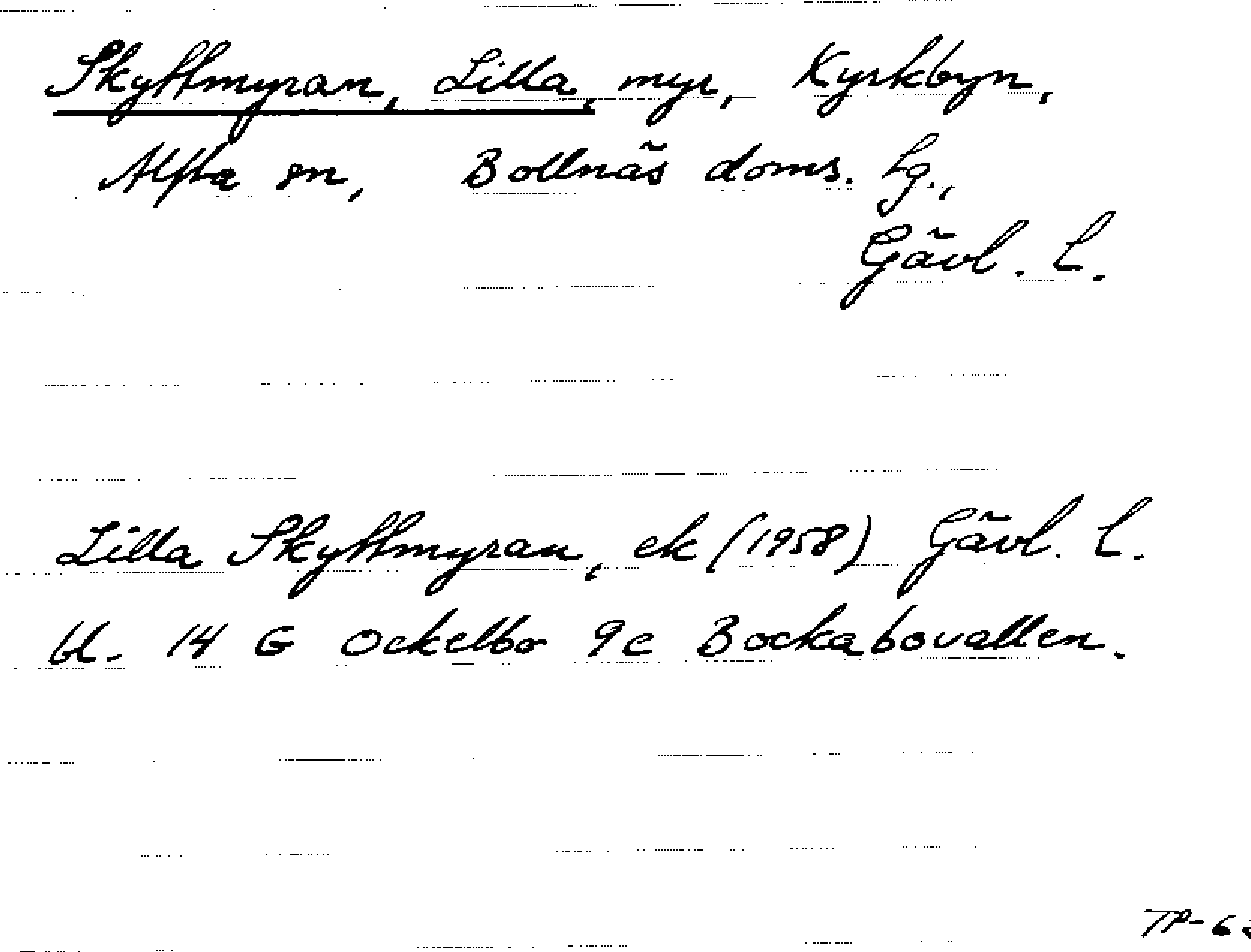 Skyttmyran, Lilla, myr, Kyrkbyn,
Alfta sn, Bollnäs doms. hg.,
Gävl. L.
Lilla Skyttmyran, ek (1958) Gävl. L.
Bl. 14 G Ockelbo 9c Bockabovallen.